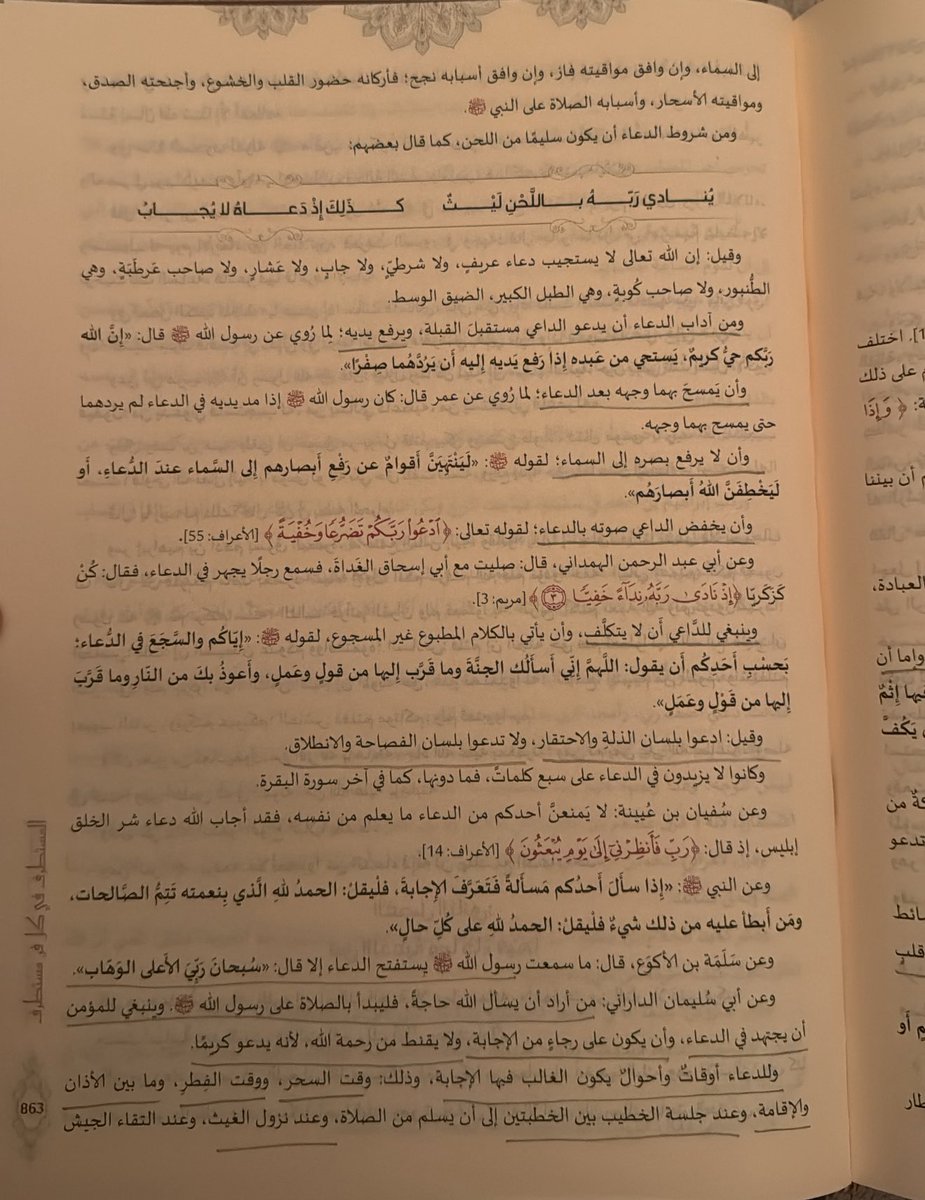 إلى السماء، وإن وافق مواقيته فاز، وإن وافق أسبابه نجح؛ فأركانه حضور القلب والخشوع، وأجنحته الصدق،
ومواقيته الأسحار، وأسبابه الصلاة على النبي ﷺ.
ومن شروط الدعاء أن يكون سليمًا من اللحن، كما قال بعضهم:
يُنَادي رَبَّهُ باللَّحْنِ لَيْثٌ كَذَلِكَ إِذْ دَعَاهُ لا يُجَابُ
وقيل: إن الله تعالى لا يستجيب دعاء عريفٍ، ولا شرطيٍّ، ولا جابٍ، ولا عَشارٍ، ولا صاحب عَرطَبَةٍ، وهي
الطُّنبور، ولا صاحب كُوبةٍ، وهي الطبل الكبير، الضيق الوسط.
ومن آداب الدعاء أن يدعو الداعي مستقبلَ القبلة، ويرفع يديه؛ لِما رُوي عن رسول الله ﷺ قال: «إنَّ الله
رَبَّكم حيٌّ كريمٌ، يَستحي من عَبده إذا رَفع يَديه إليه أَن يَرُدَّهُما صِفْرًا».
وأن يَمسحَ بهما وجهه بعد الدعاء؛ لما رُوي عن عمر قال: كان رسول الله ﷺ إذا مد يديه في الدعاء لم يردهما
حتى يمسح بهما وجهه.
وأن لا يرفع بصره إلى السماء؛ لقوله ﷺ: «لَيَنْتَهِيَنَّ أقوامٌ عن رَفْعِ أبصارهم إلى السَّماء عندَ الدُّعاءِ، أو
لَيَخْطِفَنَّ اللهُ أبصارَهُم».
وأن يخفض الداعي صوته بالدعاء؛ لقوله تعالى: ﴿ٱدۡعُواْ رَبَّكُمۡ تَضَرُّعٗا وَخُفۡيَةً﴾ [الأعراف: 55].
وعن أبي عبد الرحمن الهمداني، قال: صليت مع أبي إسحاق الغَداةَ، فسمع رجلًا يجهر في الدعاء، فقال: كُنْ
كَزَكَريّا ﴿إِذۡ نَادَىٰ رَبَّهُۥ نِدَآءً خَفِيّٗا ٣﴾ [مريم: 3].
وينبغي للدَّاعي أن لا يتكلَّف، وأن يأتي بالكلام المطبوع غير المسجوع، لقوله ﷺ: «إيّاكُم والسَّجَعَ في الدُّعاء؛
بَحسْبِ أَحَدِكُم أن يقول: اللهمَّ إنّي أسألُك الجنَّةَ وما قرَّب إليها من قولٍ وعَملٍ، وأعوذُ بكَ من النّارِ وما قَرَّبَ
إليها من قَوْلٍ وعَمَلٍ».
وقيل: ادعوا بلسان الذلةِ والاحتقار، ولا تدعوا بلسان الفصاحة والانطلاق.
وكانوا لا يزيدون في الدعاء على سبع كلماتً، فما دونها، كما في آخر سورة البقرة.
وعن سُفيان بن عُيينة: لا يَمنعنَّ أحدكم من الدعاء ما يعلم من نفسِه، فقد أجاب الله دعاء شر الخلق
إبليس، إذ قال: ﴿رَبِّ فَأَنظِرۡنِيٓ إِلَىٰ يَوۡمِ يُبۡعَثُونَ﴾ [الأعراف: 14].
وعن النبي ﷺ: «إذا سألَ أحدُكم مَسألةً فَتَعَرَّفَ الإجابةَ، فلْيقلْ: الحمدُ للهِ الَّذي بِنعمته تَتِمُّ الصَّالحات،
ومَن أبطأ عليه من ذلك شيءٌ فلْيقلْ: الحمدُ للهِ على كُلِّ حالٍ».
وعن سَلَمَة بن الأكوَع، قال: ما سمعت رسول الله ﷺ يستفتح الدعاء إلا قال: «سُبحانَ رَبِّيَ الأعلى الوَهّاب».
وعن أبي سُليمان الداراني: من أراد أن يسأل الله حاجةً، فليبدأ بالصلاة على رسول الله ﷺ. وينبغي للمؤمن
أن يجتهد في الدعاء، وأن يكون على رجاءٍ من الإجابة، ولا يقنط من رحمة الله، لأنه يدعو كريمًا.
وللدعاء أوقاتٌ وأحوالٌ يكون الغالب فيها الإجابة، وذلك: وقت السحر، ووقت الفِطرِ، وما بين الأذان
والإقامة، وعند جلسة الخطيب بين الخطبتين إلى أن يسلم من الصلاة، وعند نزول الغيث، وعند التقاء الجيش
المستطرف في كل فن مستظرف
863
اختلف
م على ذلك
﴿وَإِذَا
م أن بيننا
العبادة،
واما أن
فيها إثْمٌ
يَكُفّ
كةٌ من
تدعو
سائط
قلبٍ
مٍ أو
طار